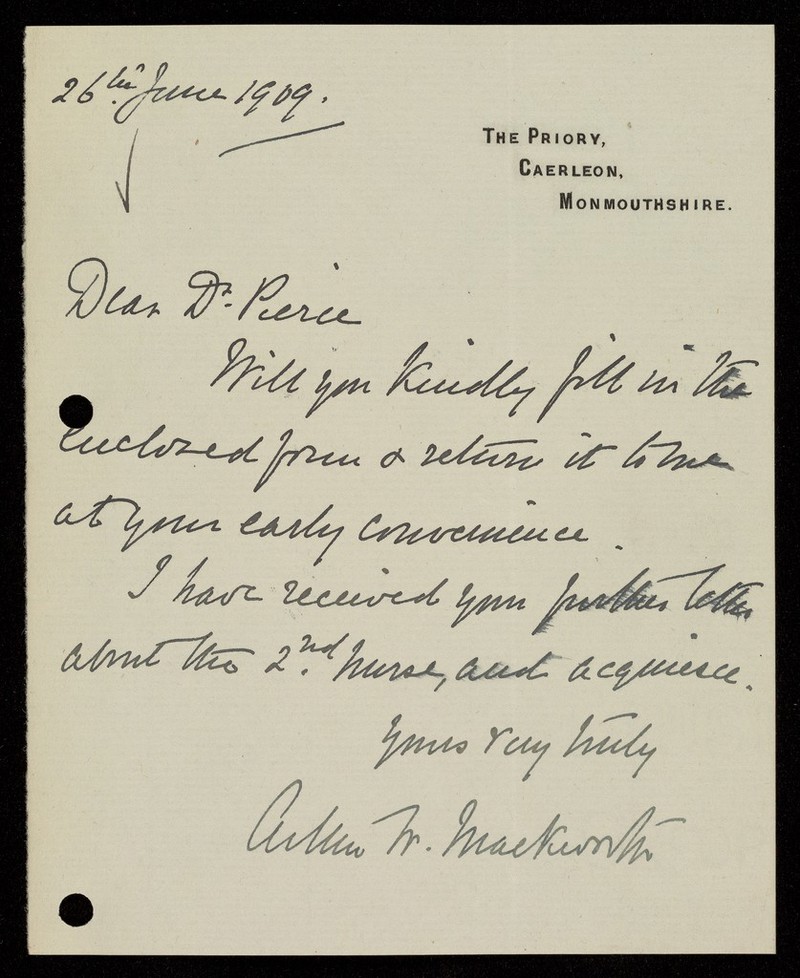 26th. June 1909.
THE PRIORY,
CAERLEON,
MONMOUTHSHIRE.
Dear Dr. Pierce
Will you kindly fill in the
enclosed form & return it to me
at your early convenience.
I have received your further letter
about the 2nd. Nurse, and acquiesce.
Yours very truly
Arthur W. Mackworth